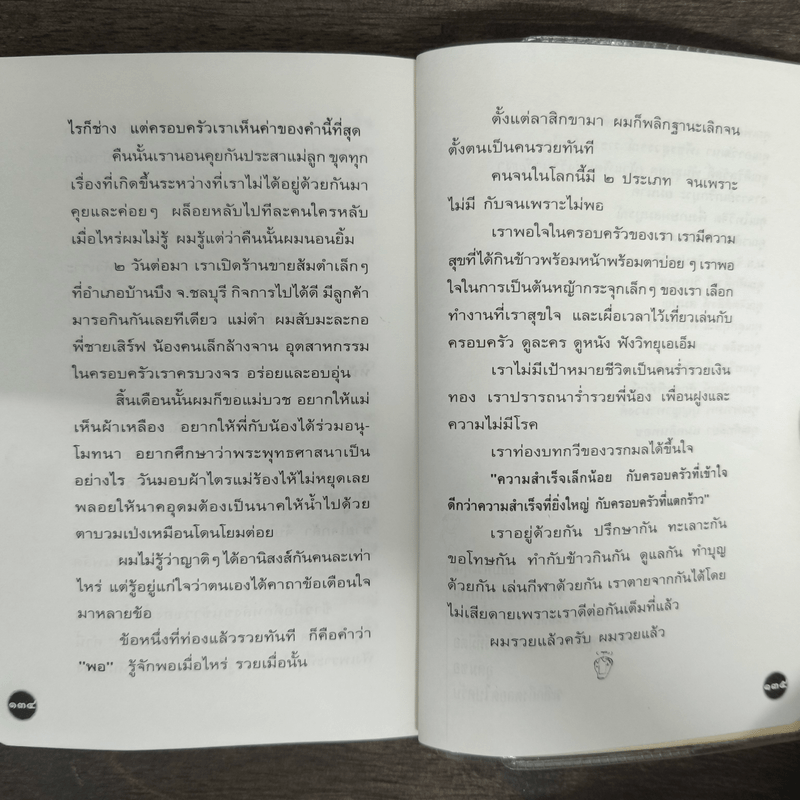 ไรก็ช่าง แต่ครอบครัวเราเห็นค่าของคำนี้ที่สุด
คืนนั้นเรานอนคุยกันประสาแม่ลูก ขุดทุก
เรื่องที่เกิดขึ้นระหว่างที่เราไม่ได้อยู่ด้วยกันมา
คุยและค่อยๆ ผล็อยหลับไปทีละคนใครหลับ
เมื่อไหร่ผมไม่รู้ ผมรู้แต่ว่าคืนนั้นผมนอนยิ้ม
๒ วันต่อมา เราเปิดร้านขายส้มตำเล็กๆ
ที่อำเภอบ้านบึง จ.ชลบุรี กิจการไปได้ดี มีลูกค้า
มารอกินกันเลยทีเดียว แม่ตำ ผมสับมะละกอ
พี่ชายเสิร์ฟ น้องคนเล็กล้างจาน อุตสาหกรรม
ในครอบครัวเราครบวงจร อร่อยและอบอุ่น
สิ้นเดือนนั้นผมก็ขอแม่บวช อยากให้แม่
เห็นผ้าเหลือง อยากให้พี่กับน้องได้ร่วมอนุ-
โมทนา อยากศึกษาว่าพระพุทธศาสนาเป็น
อย่างไร วันมอบผ้าไตรแม่ร้องไห้ไม่หยุดเลย
พลอยให้นาคอุดมต้องเป็นนาคให้น้ำไปด้วย
ตาบวมเป่งเหมือนโดนโยมต่อย
ผมไม่รู้ว่าญาติๆ ได้อานิสงส์กันคนละเท่า
ไหร่ แต่รู้อยู่แก่ใจว่าตนเองได้คาถาข้อเตือนใจ
มาหลายข้อ
ข้อหนึ่งที่ท่องแล้วรวยทันที ก็คือคำว่า
"พอ" รู้จักพอเมื่อไหร่ รวยเมื่อนั้น
๑๓๔
ตั้งแต่ลาสิกขามา ผมก็พลิกฐานะเลิกจน
ตั้งตนเป็นคนรวยทันที
คนจนในโลกนี้มี ๒ ประเภท จนเพราะ
ไม่มี กับจนเพราะไม่พอ
เราพอใจในครอบครัวของเรา เรามีความ
สุขที่ได้กินข้าวพร้อมหน้าพร้อมตาบ่อยๆ เราพอ
ใจในการเป็นต้นหญ้ากระจุกเล็กๆ ของเรา เลือก
ทำงานที่เราสุขใจ และเผื่อเวลาไว้เที่ยวเล่นกับ
ครอบครัว ดูละคร ดูหนัง ฟังวิทยุเอเอ็ม
เราไม่มีเป้าหมายชีวิตเป็นคนร่ำรวยเงิน
ทอง เราปรารถนาร่ำรวยพี่น้อง เพื่อนฝูงและ
ความไม่มีโรค
เราท่องบทกวีของวรกมลได้ขึ้นใจ
"ความสำเร็จเล็กน้อย กับครอบครัวที่เข้าใจ
ดีกว่าความสำเร็จที่ยิ่งใหญ่ กับครอบครัวที่แตกร้าว"
เราอยู่ด้วยกัน ปรึกษากัน ทะเลาะกัน
ขอโทษกัน ทำกับข้าวกินกัน ดูแลกัน ทำบุญ
ด้วยกัน เล่นกีฬาด้วยกัน เราตายจากกันได้โดย
ไม่เสียดายเพราะเราดีต่อกันเต็มที่แล้ว
ผมรวยแล้วครับ ผมรวยแล้ว
๑๓๕